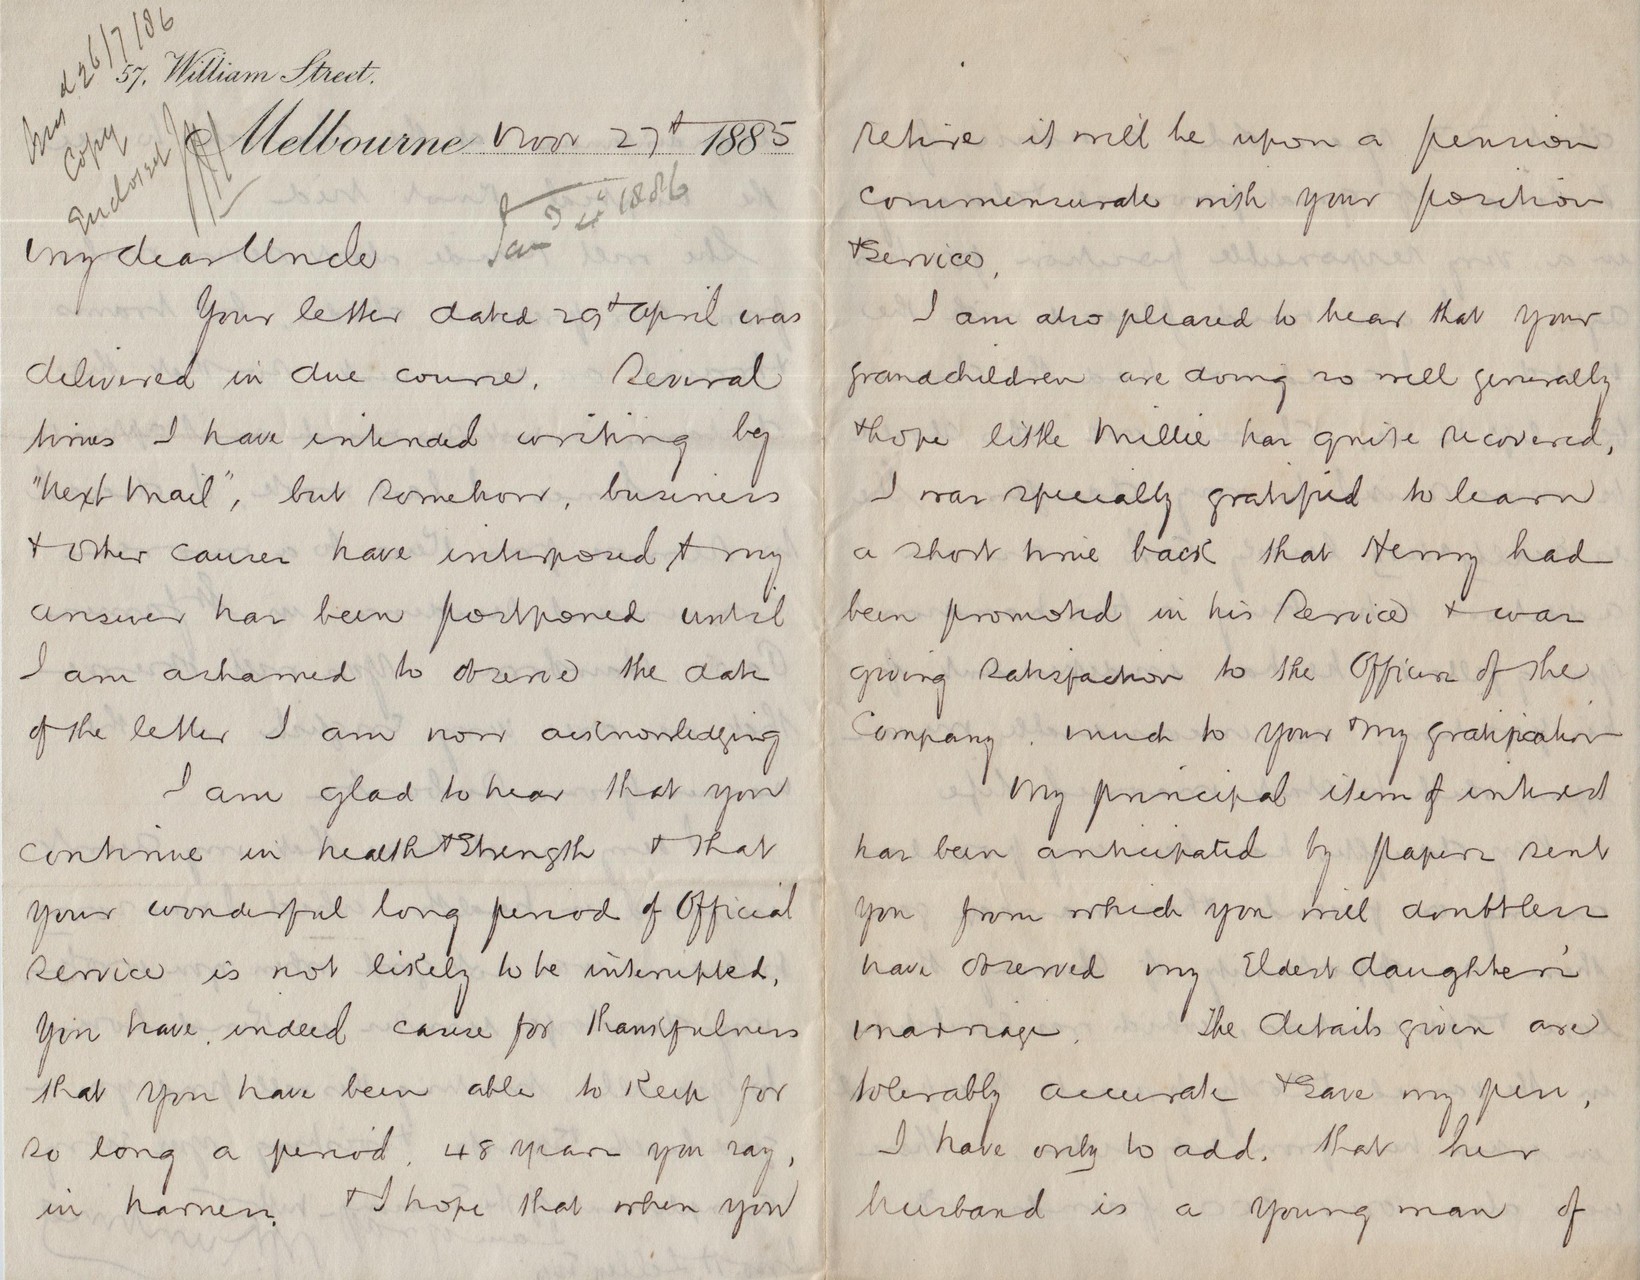 26/7/86
Copy
Endorsed
57, William Street.
Melbourne Novr 27t 1885
Jan 1886
My dear Uncle
Your letter dated 29t April was
delivered in due course. Several
times I have intended writing by
"next mail", but somehow, business
& other causes have interposed & my
answer has been postponed until
I am ashamed to observe the date
of the letter I am now acknowledging
I am glad to hear that you
continue in health & strength & that
your wonderful long period of Official
service is not likely to be interrupted,
You have, indeed cause for thankfulness
that you have been able to keep for
so long a period, 48 years you say,
in harness, & I hope that when you
retire it will be upon a pension
commensurate with your position
& service,
I am also pleased to hear that your
grandchildren are doing so well generally
& hope little Millie has quite recovered,
I was specially gratified to learn
a short time back that Henry had
been promoted in his Service & was
giving satisfaction to the Officers of the
Company, much to your & my gratification
My principal item of interest
has been anticipated by papers sent
you from which you will doubtless
have observed my Eldest daughter's
marriage, The details given are
tolerably accurate & save my pen,
I have only to add, that her
husband is a young man of